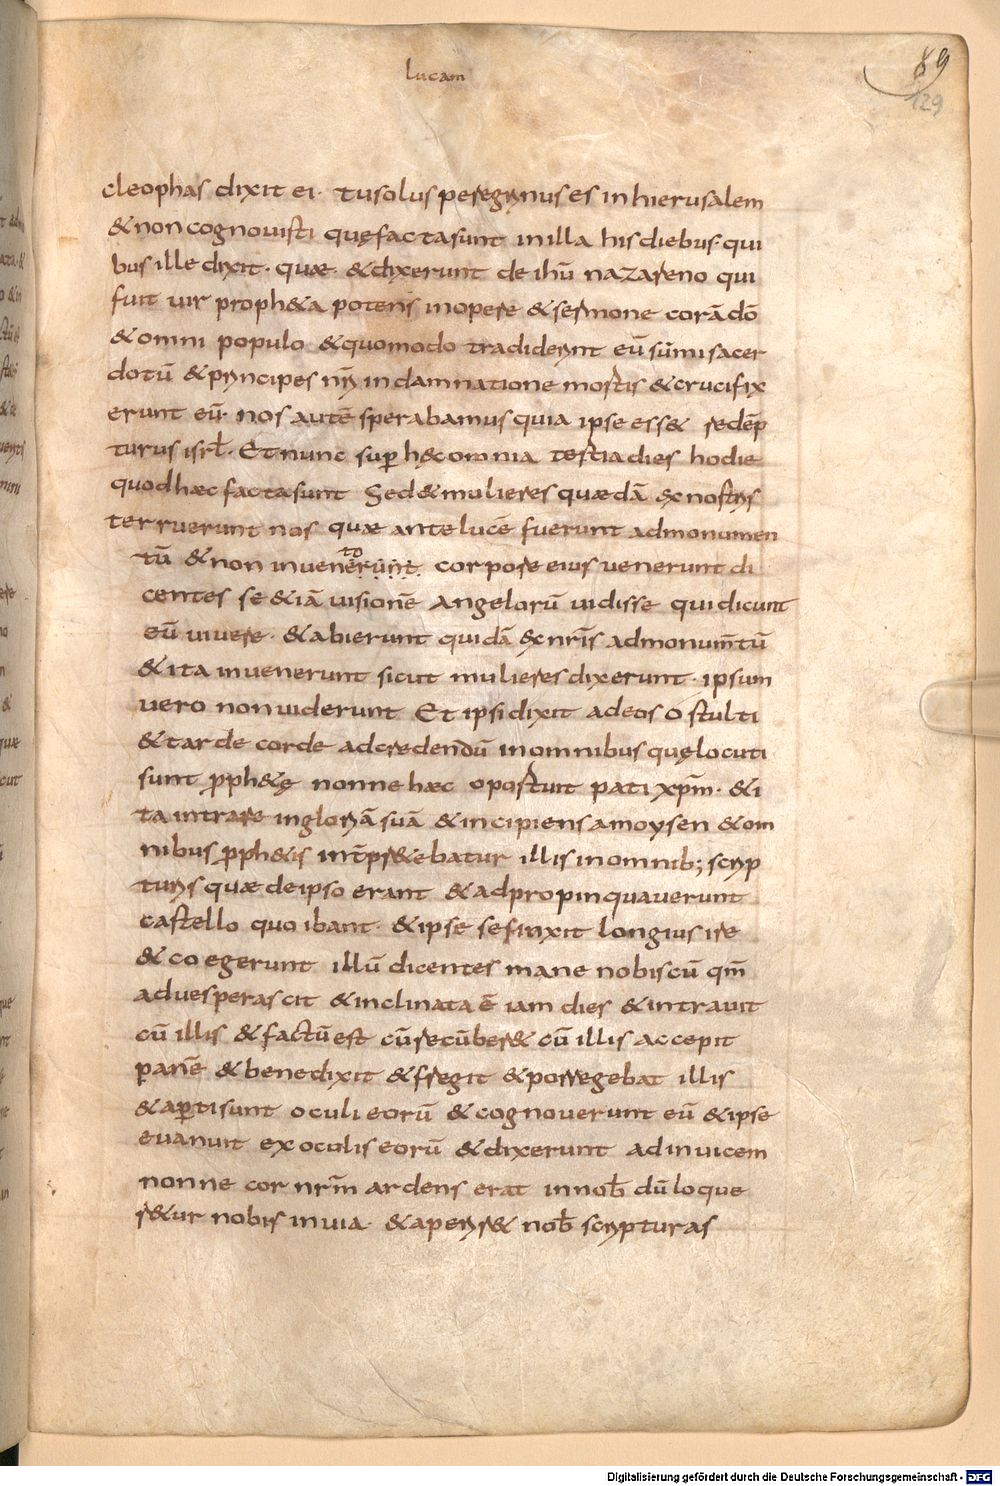 lucam
89
129
cleophas dixit ei· tu solus peregrinus es in hierusalem
& non cognovisti quę facta sunt in illa his diebus· qui
bus ille dixit· quae· & dixerunt de ihū nazareno qui
fuit vir proph&a potens in opere & sermone corā dō
& omni populo & quomodo tradiderint eū sūmi sacer
dotū & principes nr̄i in damnatione mortis & crucifix
erunt eū· nos autē sperabamus quia ipse ess& redēp
turus isrl̄· Et nunc sup̄ hęc omnia tertia dies hodie
quod haec facta sunt Sed & mulieres quaedā ex nostris
terruerunt nos quae ante lucē fuerunt ad monumen
tū & non invenerunt to corpore eius venerunt di
centes se &iā visionē angelorū vidisse qui dicunt
eū vivere· & abierunt quidā ex nr̄is ad monum̄tū
& ita invenerunt sicut mulieres dixerunt· ipsum
vero non viderunt Et ipsi dixit ad eos o stulti
& tarde corde ad credendū in omnibus quę locuti
sunt p̄ph&ę nonne haec oportuit pati xp̄m· & i
ta intrare in gloriā suā & incipiens a moysen & om
nibus p̄ph&is int̄pr&ebatur illis in omnib; scrip
turis quae de ipso erant & adpropinquaverunt
castello quo ibant· & ipse se finxit longius ire
& coegerunt illū dicentes mane nobiscū qm̄
advesperascit & inclinata ē iam dies & intravit
cū illis & factū est cū recūber& cū illis accepit
panē & benedixit & fregit & porregebat illis
& ap̄ti sunt oculi eorū & cognoverunt eū & ipse
evanuit ex oculis eorū & dixerunt ad invicem
nonne cor nr̄m ardens erat in nob̄ dū loque
r&ur nobis in via· & aperir& nob̄ scripturas
Digitalisierung gefördert durch die Deutsche Forschungsgemeinschaft - DFG